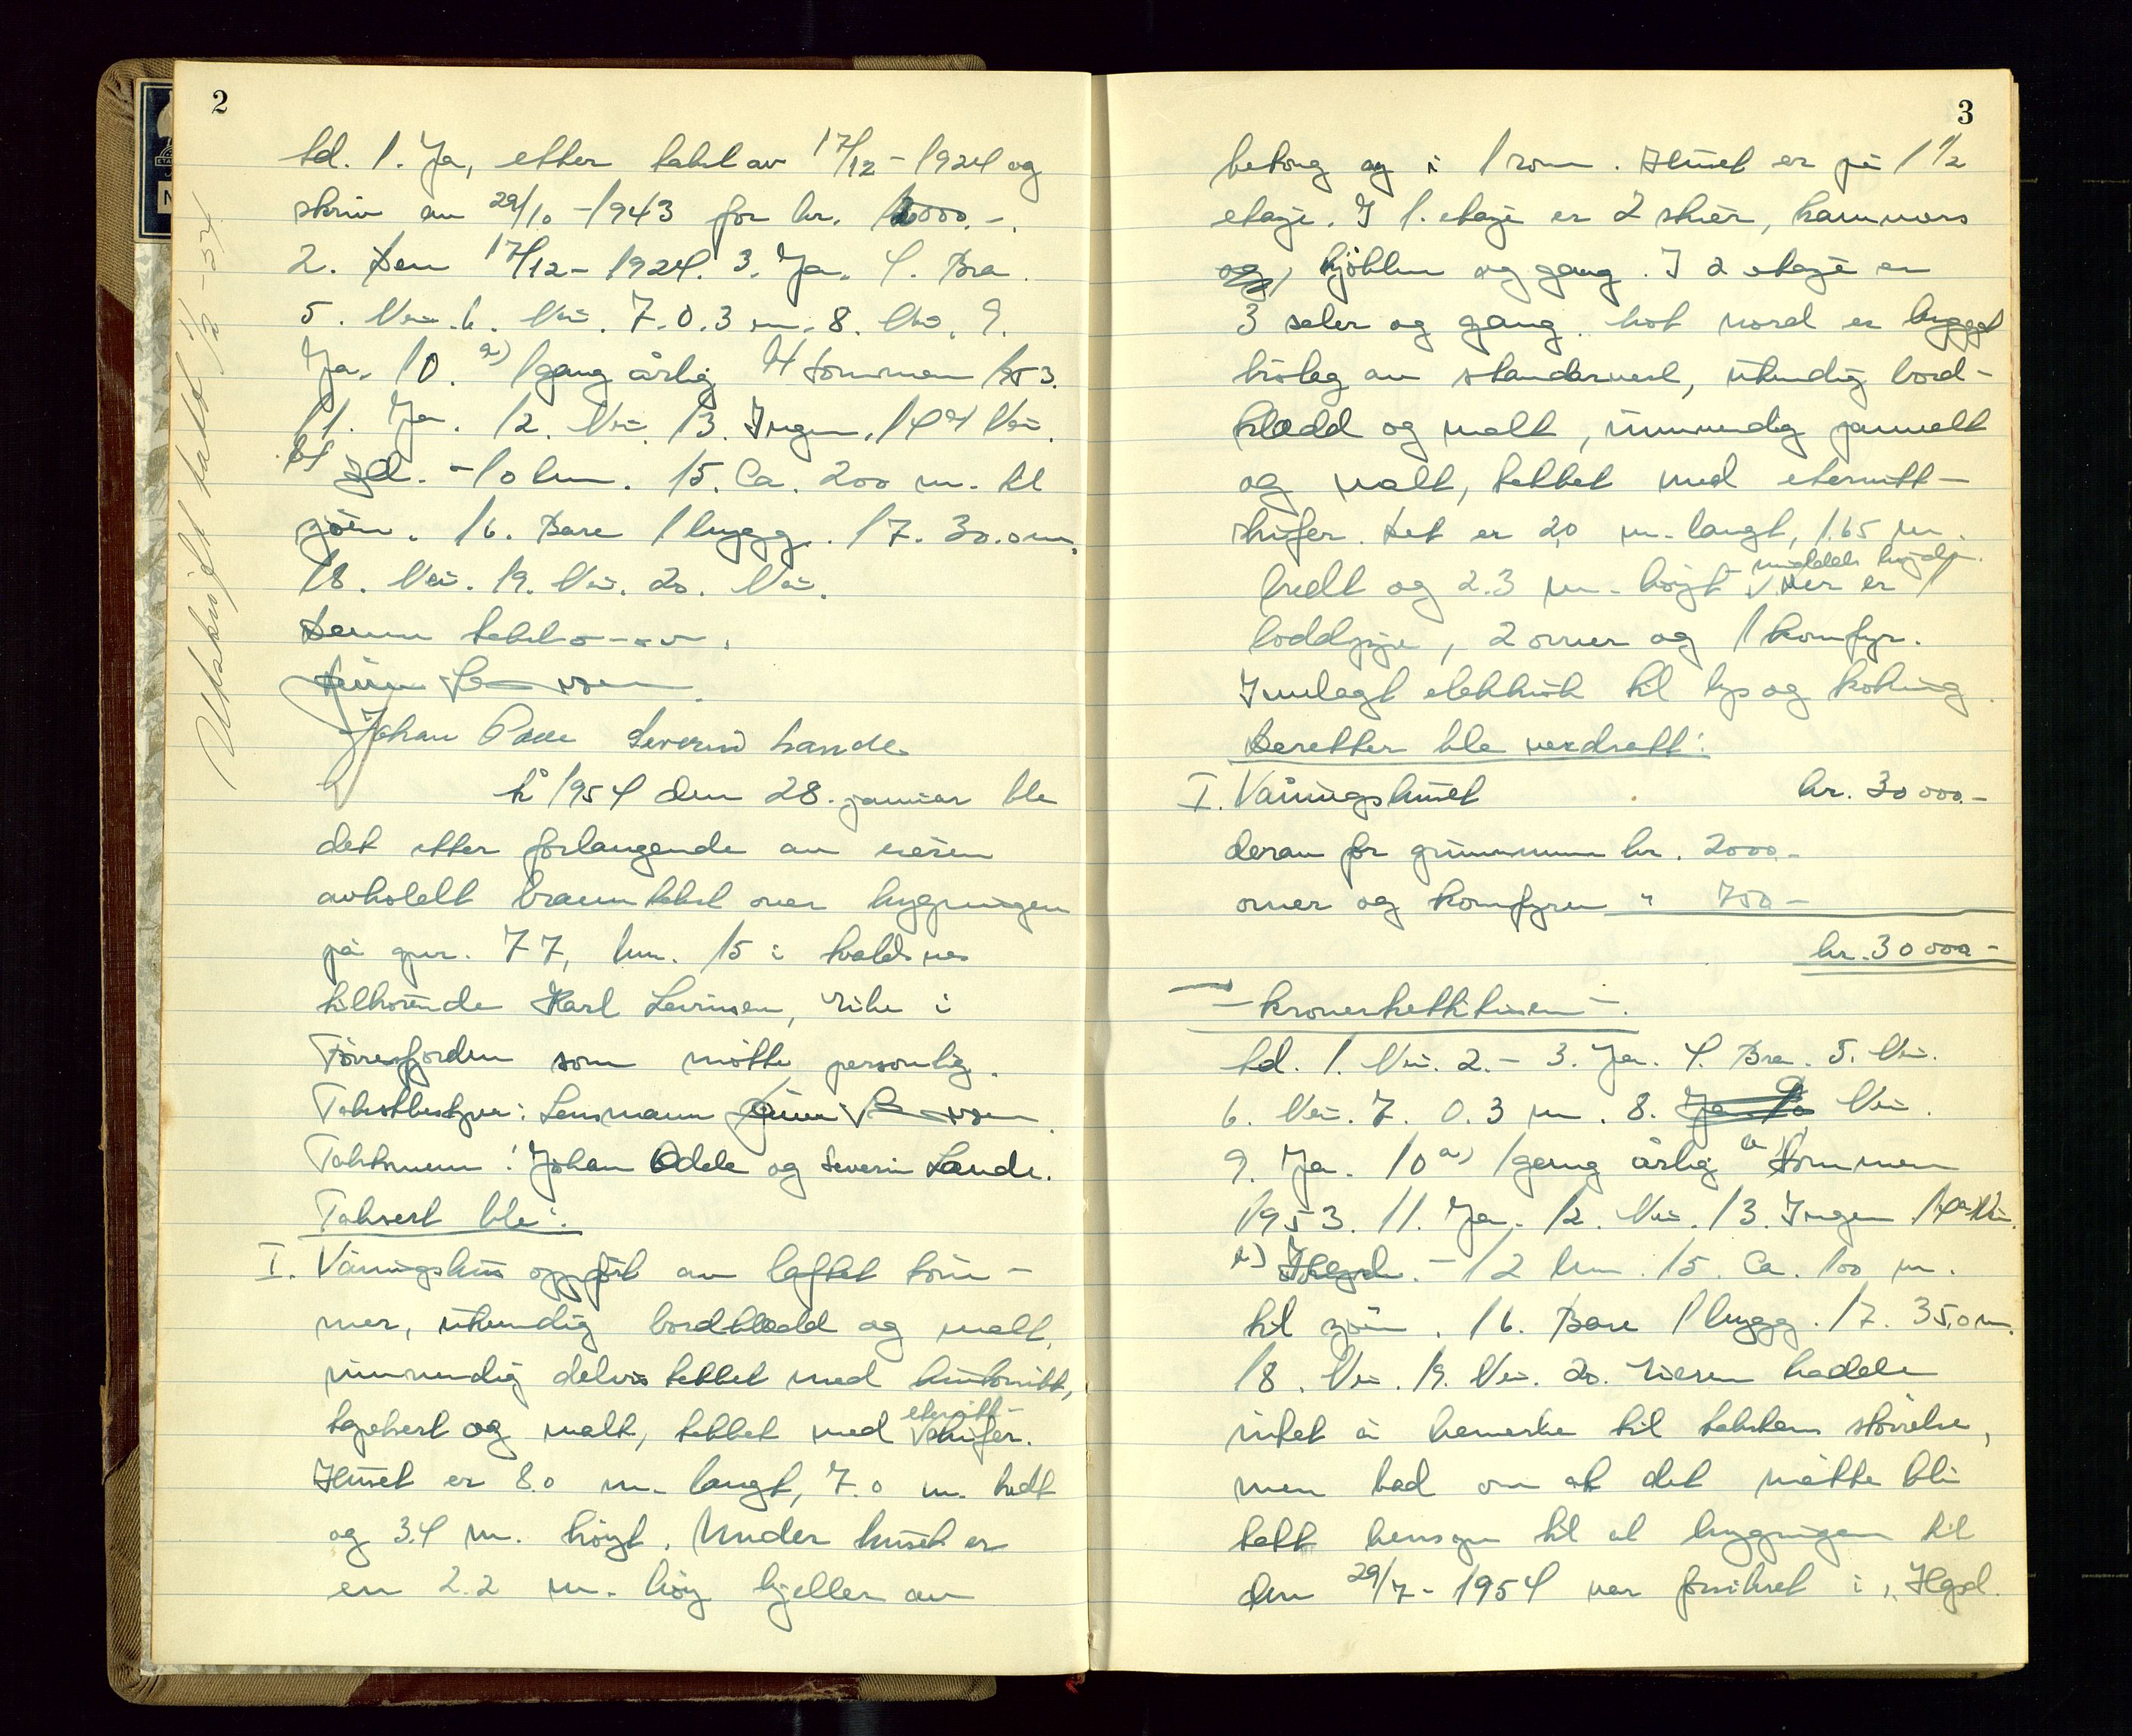 2
td. 1. Ja, etter takst av 17/12-1924 og
skriv av 29/10-1943 for kr. 12000.-.
2. Den 17/12-1924. 3. Ja. 4. Bra.
5. Nei. 6. Nei. 7. 0.3 m. 8. Nei. 9.
Ja. 10. a) 1 gang årlig b) Sommeren 1953.
11. Ja. 12. Nei. 13. Ingen. 14 a) Nei.
b) - 10 km. 15. Ca. 200 m. til
sjöen. 16. Bare 1 bygg. 17. 30.0 m.
18. Nei. 19. Nei. 20. Nei.
Denne takst o-o-v.
Johan Odde Severin Lande
År 1954 den 28. januar ble
det etter forlangende av eieren
avholdt branntakst over bygningen
på gnr. 77, bnr. 15 i Avaldsnes
tilhörende Karl Levinsen, Eike i
Förresfjorden som mötte personlig.
Takstbestyrer: Lensmann
Takstmenn: Johan Odde og Severin Lande.
Taksert ble:
I. Våningshus oppfört av laftet töm-
mer, utvendig bordkledd og malt,
innvendig delvis tekket med huntonitt,
tapetsert og malt, tekket med eternitt-
skifer.
Huset er 8.0 m. langt, 7.0 m. bredt
og 3.4 m. höyt. Under huset er
en 2.2 m. höy kjeller av
Utskrift takst 1/2-54
3
betong og i 1 rom. Huset er på 1 1/2
etasje. I 1. etasje er 2 stuer, kammers
og, kjökken og gang. I 2 etasje er
3 saler og gang. Mot nord er bygget
bislag av standerverk, utvendig bord-
kledd og malt, innvendig pannelt
og malt, tekket med eternitt-
skifer. Det er 2,0 m. langt, 1.65 m.
bredt og 2.3 m. höyt middels höyde. Her er 1
loddpipe, 2 ovner og 1 komfyr.
Innlagt elektrisk til lys og koking.
Deretter ble verdsatt:
I. Våningshuset kr. 30 000.-
derav for grunnmuren kr. 2000.-
ovner og komfyren " 700 -
kr. 30 000 -
- Kronertrettitusen -.
td. 1. Nei. 2. - 3. Ja. 4. Bra. 5. Nei.
6. Nei. 7. 0.3 m. 8. Ja. 10 Nei.
9. Ja. 10 a) 1 gang årlig b) Sommeren
1953. 11. Ja. 12. Nei. 13. Ingen 14 a) Nei.
b) - 12 km. 15. Ca. 100 m.
til sjöen. 16. Bare 1 bygg. 17. 35,0 m.
18. Nei. 19. Nei. 20. Eieren hadde
intet å bemerke til takstens störrelse,
men bad om at det måtte bli
tatt hensyn til at bygningen til
den 29/7-1954 var forsikret i